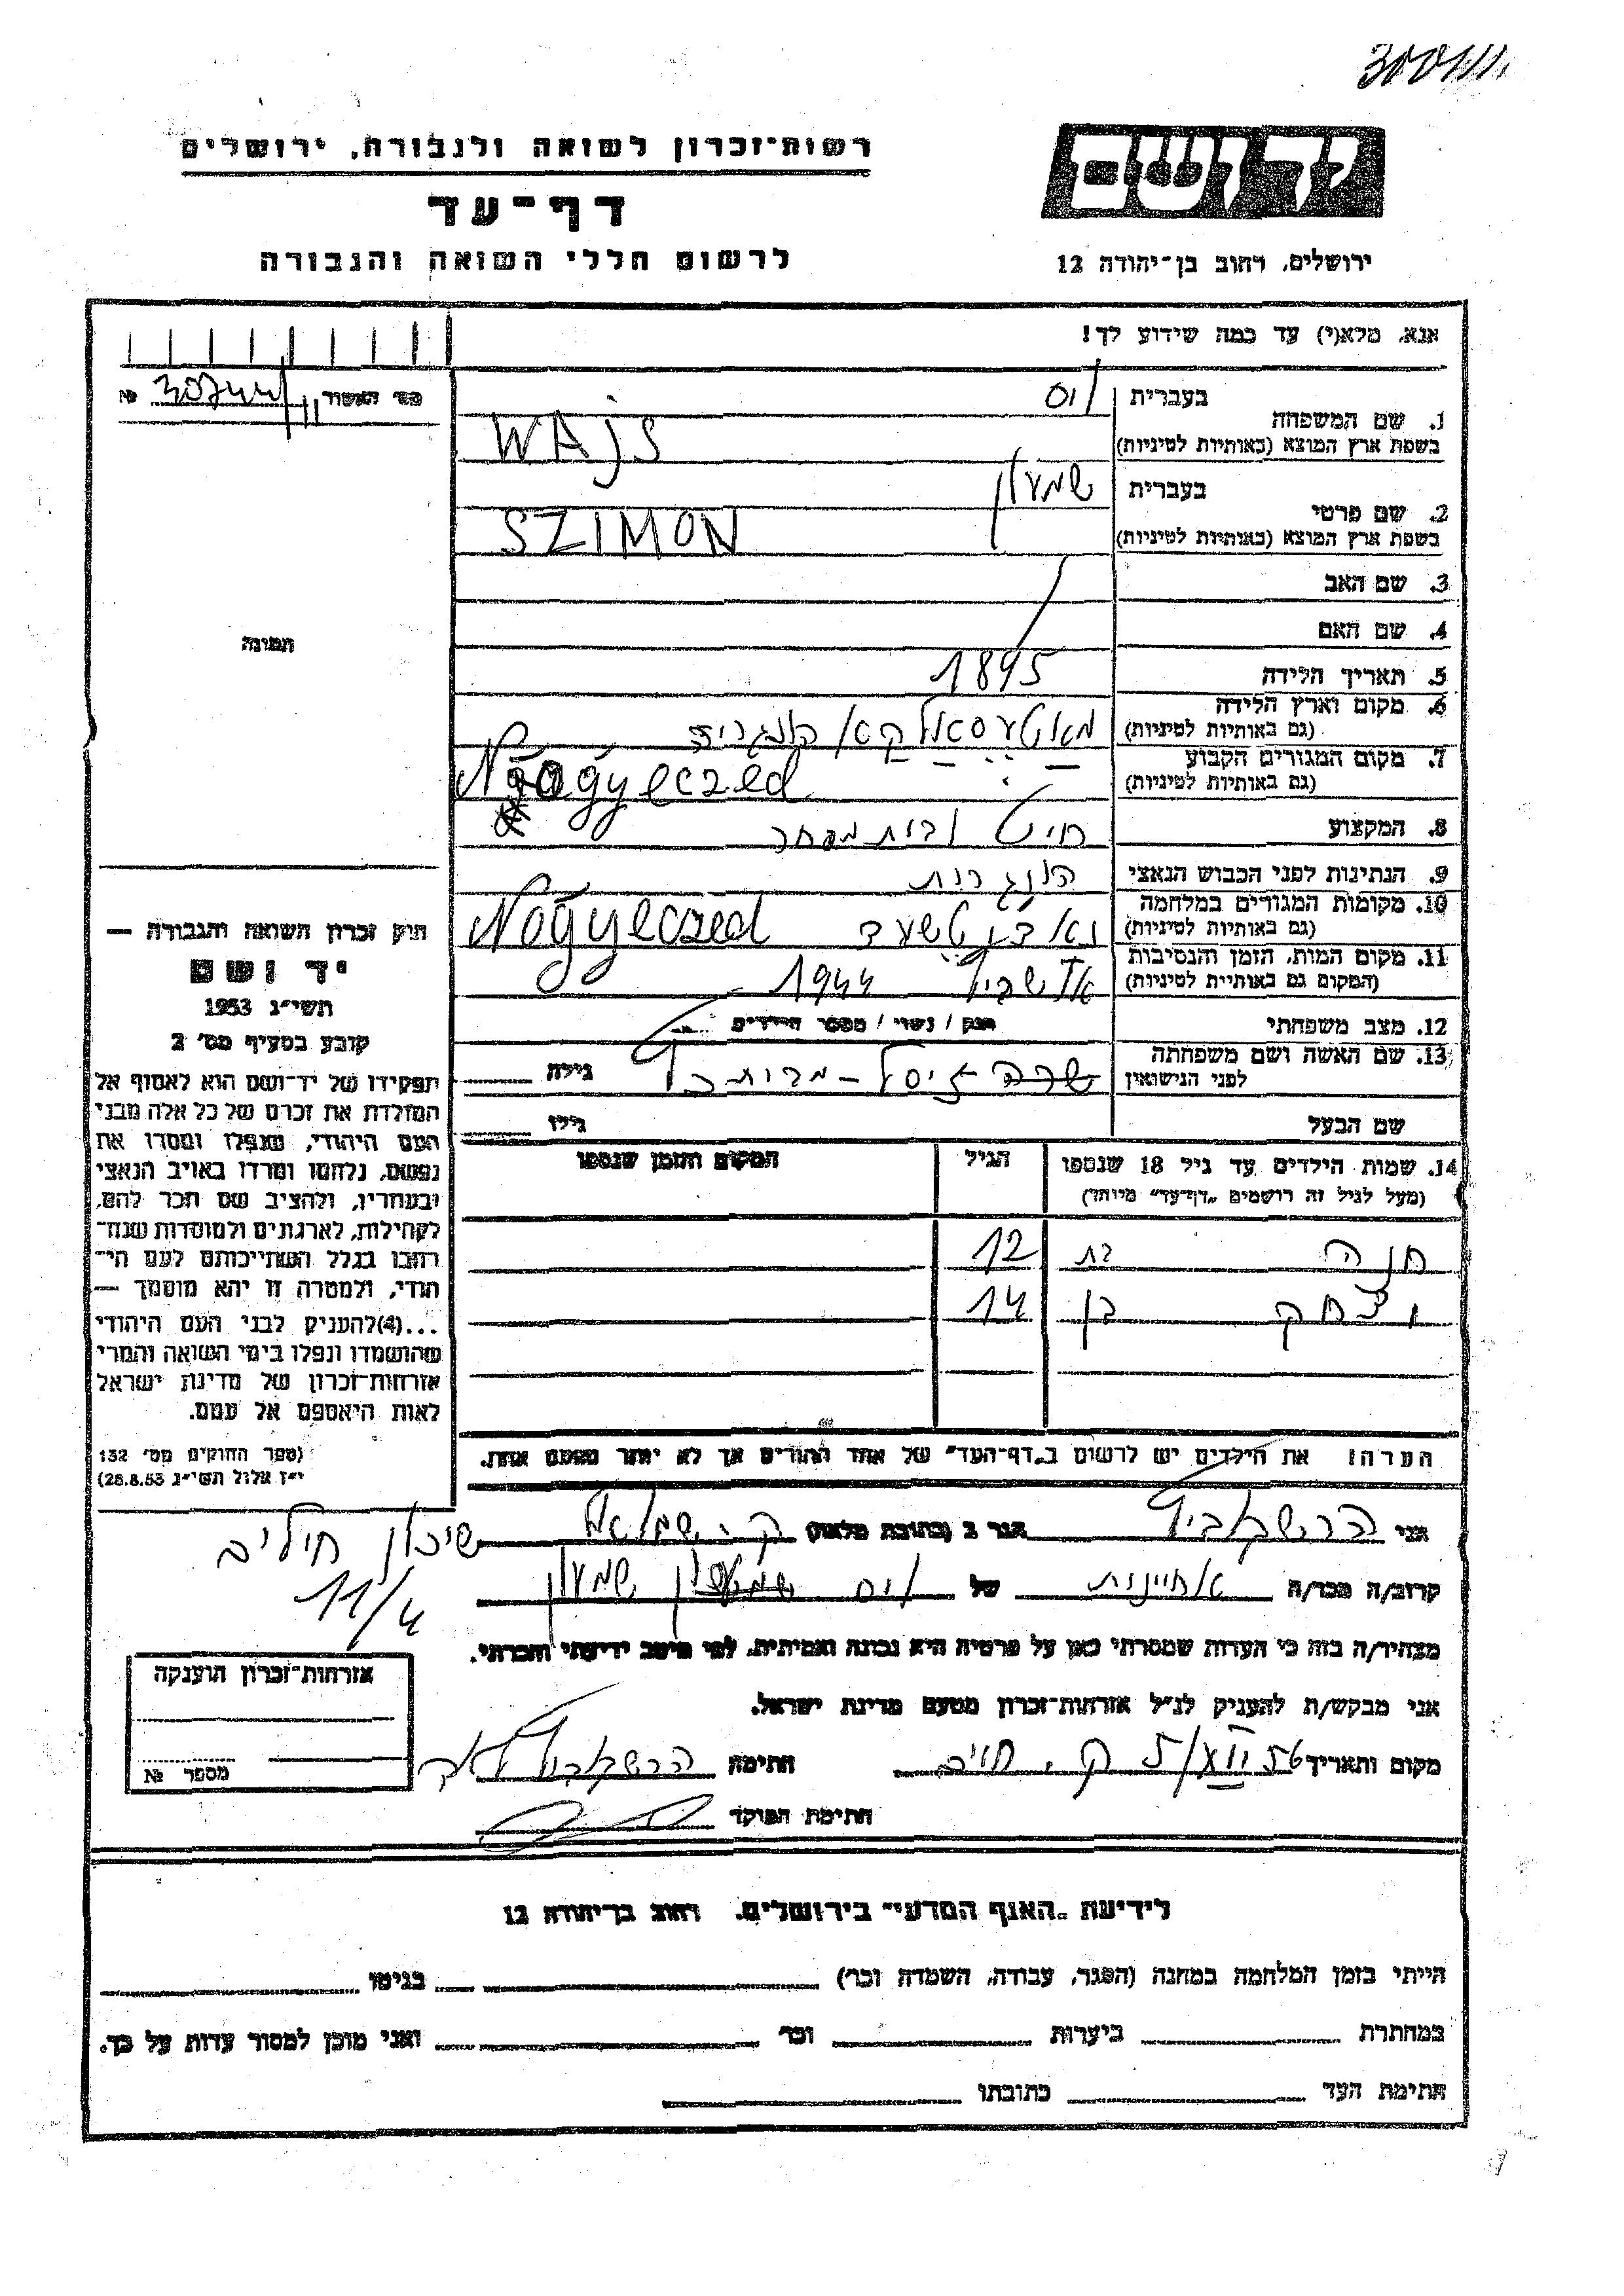 רשות־זכרון לשואה ולגבורה, ירושלים
דף־עד
לרשום חללי השואה והגבורה
יד ושם
ירושלים, רחוב בן־יהודה 12
אנא, מלא(י) עד כמה שידוע לך!
1. שם המשפחה
בעברית ויס
בשפת ארץ המוצא (באותיות לטיניות) WAJS
2. שם פרטי
בעברית שמעון
בשפת ארץ המוצא (באותיות לטיניות) SZIMON
3. שם האב
4. שם האם
5. תאריך הלידה 1895
6. מקום וארץ הלידה
(גם באותיות לטיניות)
7. מקום המגורים הקבוע Nagyeczed
(גם באותיות לטיניות)
8. המקצוע חייט ובית מסחר
9. הנתינות לפני הכבוש הנאצי הונגרית
10. מקומות המגורים במלחמה Nagyeczed
(גם באותיות לטיניות)
11. מקום המות, הזמן והנסיבות 1944
(המקום גם באותיות לטיניות)
12. מצב משפחתי רוק / נשוי / מספר הילדים
13. שם האשה ושם משפחתה
לפני הנישואין גילה
שם הבעל גילו
14. שמות הילדים עד גיל 18 שנספו הגיל המקום והזמן שנספו
(מעל לגיל זה רושמים „דף־עד" מיוחד)
חנה בת 12
יצחק בן 14
הערה! את הילדים יש לרשום ב„דף־העד" של אחד ההורים אך לא יותר מפעם אחת.
מס' האשור №
תמונה
חוק זכרון השואה והגבורה —
יד ושם
תשי״ג 1953
קובע בסעיף מס' 2
תפקידו של יד־ושם הוא לאסוף אל
המולדת את זכרם של כל אלה מבני
העם היהודי, שנפלו ומסרו את
נפשם, נלחמו ומרדו באויב הנאצי
ובעוזריו, ולהציב שם וזכר להם,
לקהילות, לארגונים ולמוסדות שנח־
רבו בגלל השתייכותם לעם הי־
הודי, ולמטרה זו יהא מוסמך —
...(4) להעניק לבני העם היהודי
שהושמדו ונפלו בימי השואה והמרי
אזרחות־זכרון של מדינת ישראל
לאות היאספם אל עמם.
(ספר החוקים מס' 132
י״ז אלול תשי״ג 28.8.53)
אני הרשקוביץ הגר ב (כתובת מלאה) ק. שמואל שיכון
11/4
קרוב/ה מכר/ה אחיינית של ויס שמעון
מצהיר/ה בזה כי העדות שמסרתי כאן על פרטיה היא נכונה ואמיתית, לפי מיטב ידיעתי והכרתי.
אני מבקש/ת להעניק לנ״ל אזרחות־זכרון מטעם מדינת ישראל.
מקום ותאריך חתימה
חתימת הפוקד
אזרחות־זכרון הוענקה
מספר №
לידיעת „האגף המדעי" בירושלים, רחוב בן־יהודה 12
הייתי בזמן המלחמה במחנה (הסגר, עבודה, השמדה וכו') בגיטו
במחתרת ביערות וכו' ואני מוכן למסור עדות על כך.
חתימת העד כתובתו